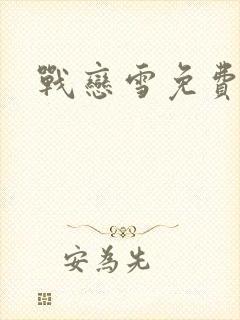 戰戀雪免費
安為先